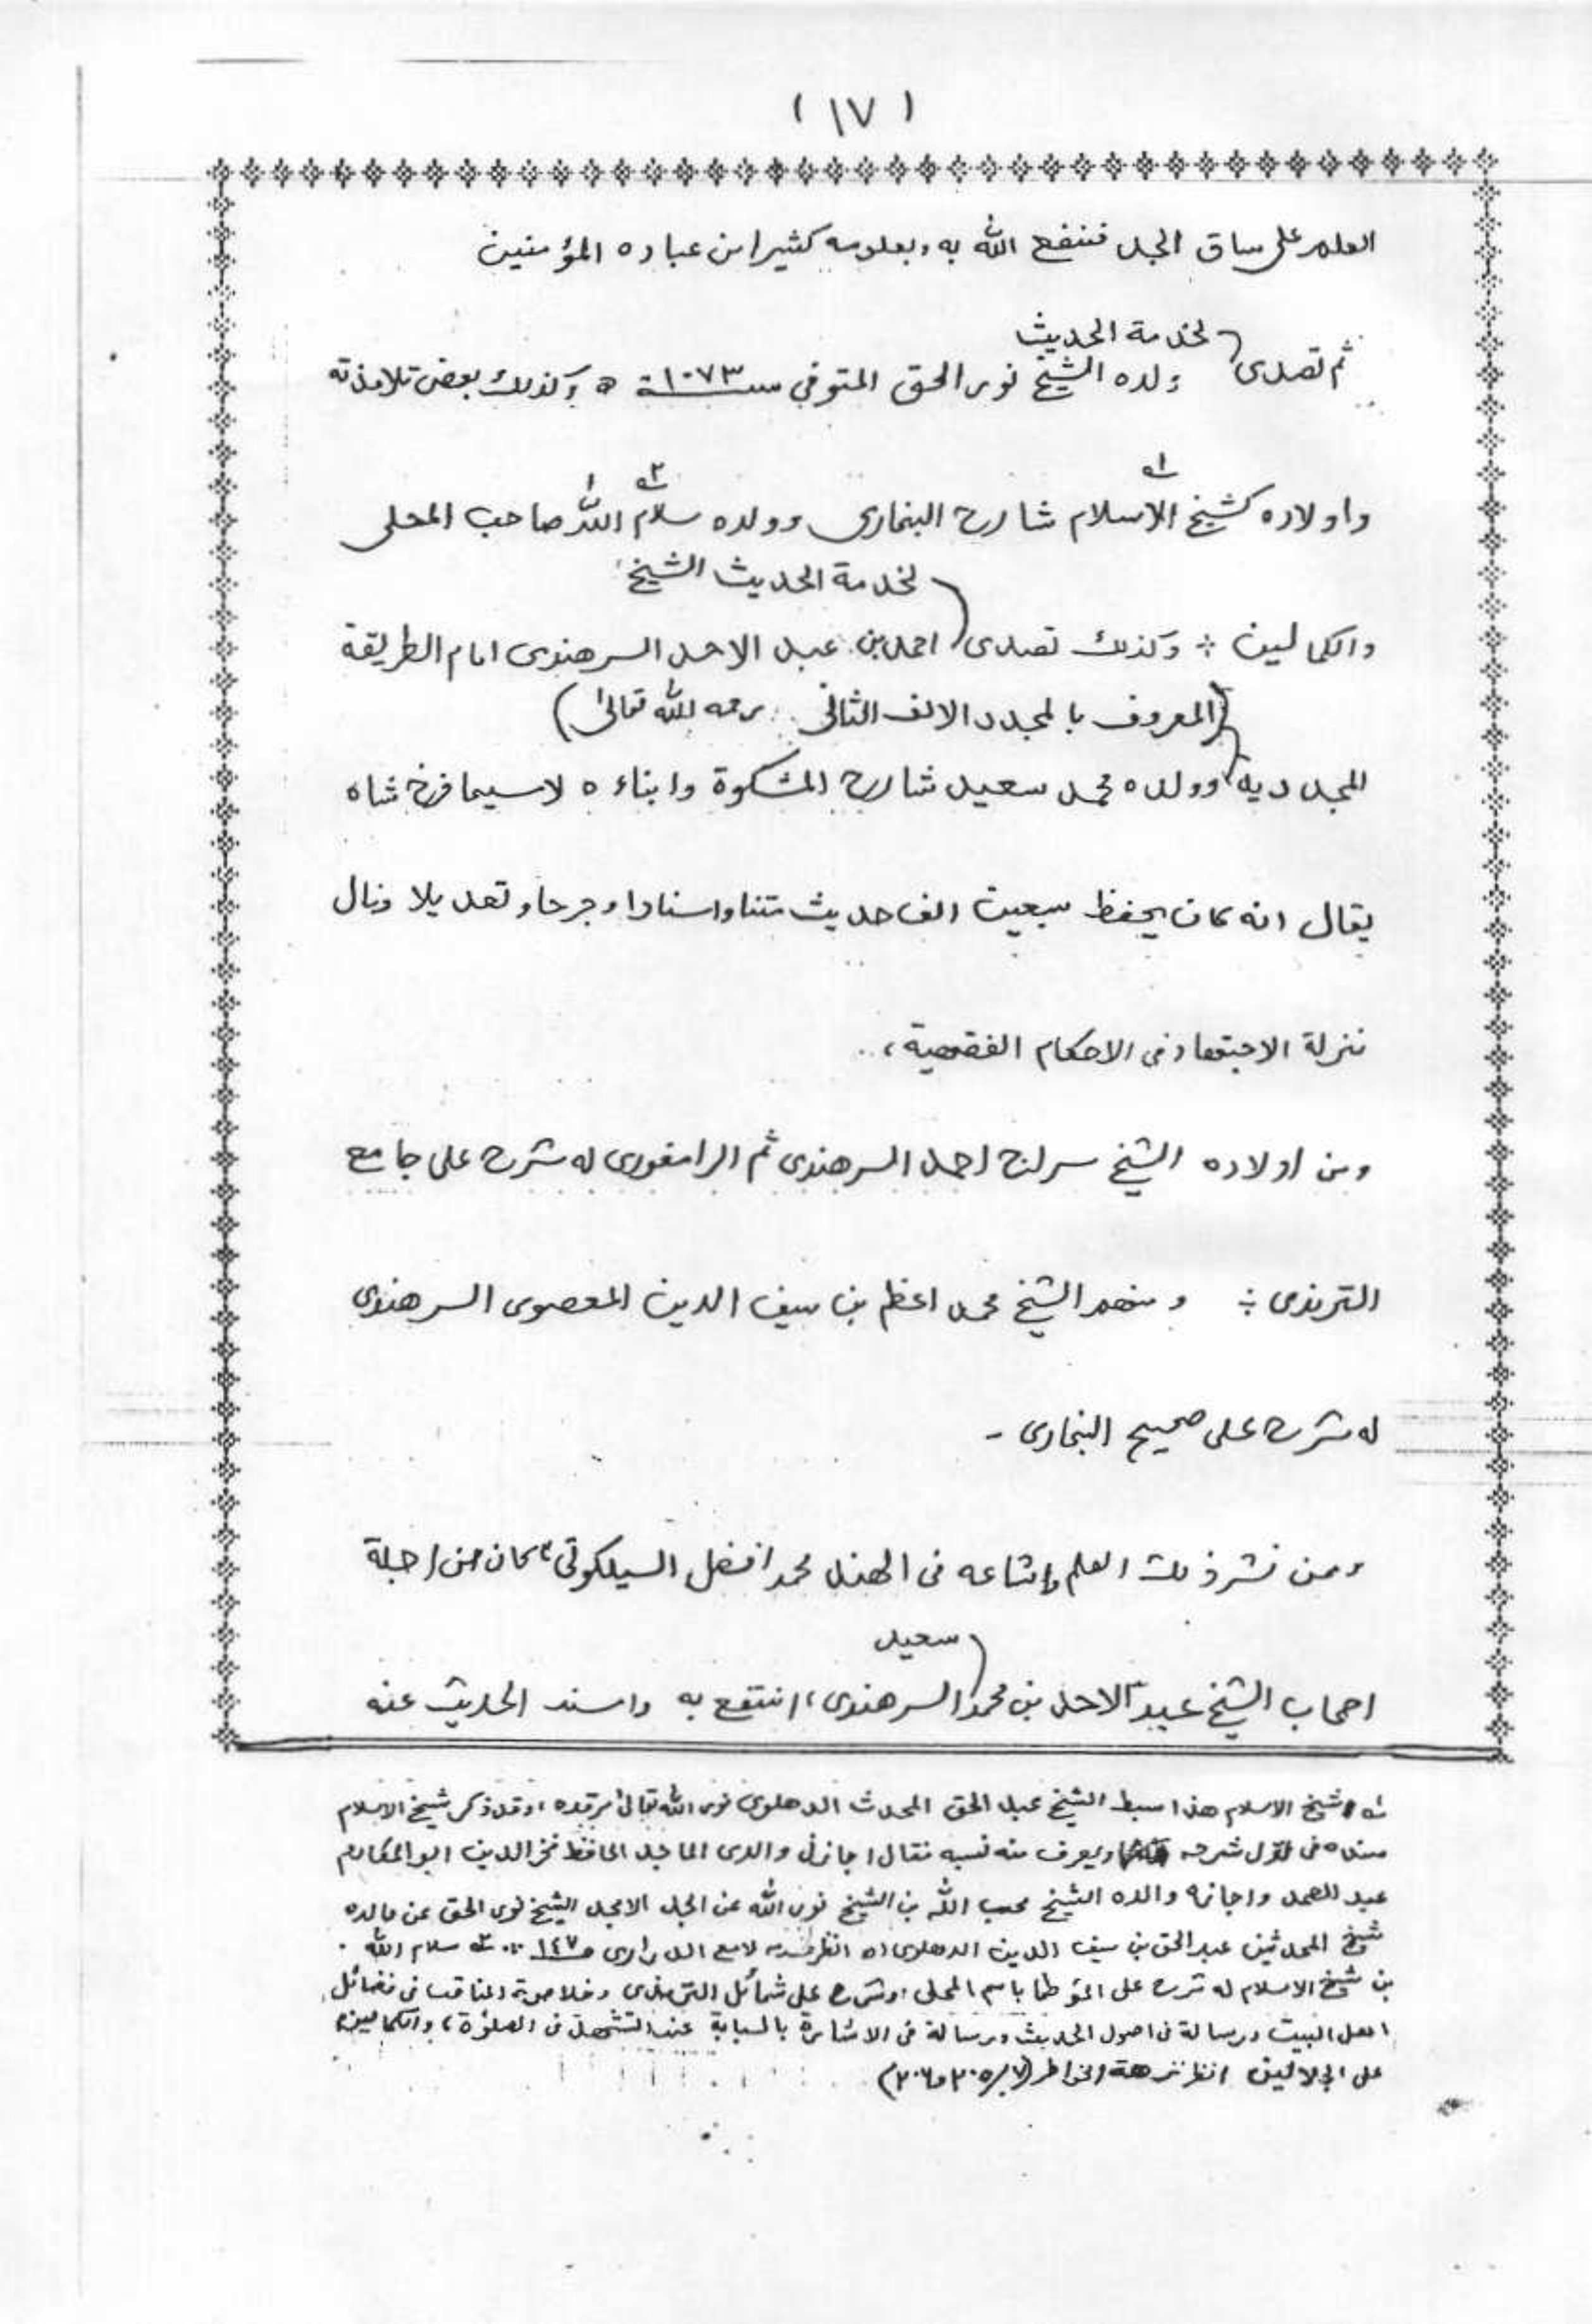 ( ١٧ )
العلم على ساق الجد فنفع الله به وبعلومه كثيرا من عباده المؤمنين
لخدمة الحديث
ثم تصدى ولده الشيخ نور الحق المتوفى سنة ١٠٧٣ ه وكذلك بعض تلامذته
واولاده كشيخ الاسلام شارح البخارى وولده سلام الله صاحب المحلى
لخدمة الحديث الشيخ
والكمالين ÷ وكذلك تصدى احمد بن عبد الاحد السرهندى امام الطريقة
(المعروف بالمجدد الالف الثانى رحمه الله تعالى)
المجددية وولده محمد سعيد شارح المشكوة وابناءه لاسيما فرخ شاه
يقال انه كان يحفظ سبعين الف حديث متنا واسنادا وجرحا وتعديلا ونال
منزلة الاجتهاد فى الاحكام الفقهية،
ومن اولاده الشيخ سراج احمد السرهندى ثم الرامفورى له شرح على جامع
الترمذى ÷ ومنهم الشيخ محمد اعظم بن سيف الدين المعصومى السرهندى
له شرح على صحيح البخارى -
وممن نشر ذلك العلم واشاعه فى الهند محمد افضل السيلكوتى، كان من اجلة
سعيد
اصحاب الشيخ عبد الاحد بن محمد السرهندى، انتفع به واسند الحديث عنه
له شيخ الاسلام هذا سبط الشيخ عبد الحق المحدث الدهلوى نور الله تعالى مرقده، وقد ذكر شيخ الاسلام
سنده فى اول شرحه ويعرف منه نسبه فقال اجازنى والدى الماجد الحافظ فخر الدين ابو المكارم
عبد الصمد واجازه والده الشيخ محب الله بن الشيخ نور الله عن الجد الامجد الشيخ نور الحق عن والده
شيخ المحدثين عبد الحق بن سيف الدين الدهلوى اه انظر لامع الدرارى ص ١٤٧ ٢ه سلام الله
بن شيخ الاسلام له شرح على المؤطا باسم المحلى، وشرح على شمائل الترمذى وخلاصة المناقب فى فضائل
اهل البيت ورسالة فى اصول الحديث ورسالة فى الاشارة بالسبابة عند التشهد فى الصلوة، والكمالين
على الجلالين انظر نزهة الخواطر (٧/٢٠٥ و٢٠٦)